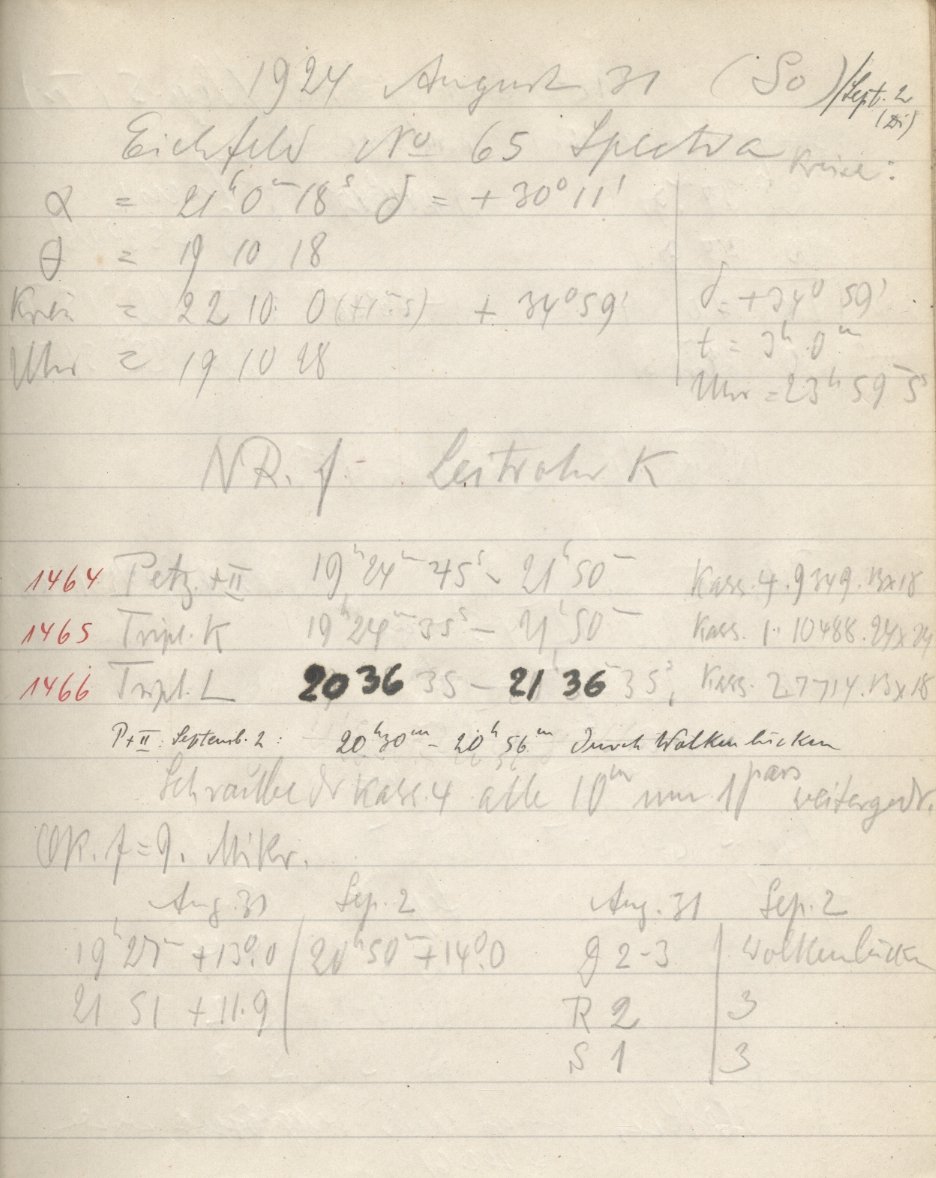 1924 August 31 (So)/Sept. 2
(Di)
Eichfeld No 65 Spectra
Kreise:
α = 21h 0m 18s δ = +30° 11'
θ = 19 10 18
Kreis = 22 10 0 + 34° 59'
δ = +34° 59'
t = 3h 0m
Uhr = 19 10 28
Uhr = 23h 59 5s
NR. f. Leitrohr K
1464 Petz. + II 19h 24m 45s - 21h 50m Kass. 4. 9349. 13x18
1465 Tripl. K 19h 24m 35s - 21h 50m Kass. 1. 10488. 24x24
1466 Tripl. L 20 36 35 - 21 36 35s, Kass. 2 7714. 13x18
P+II: Septemb. 2: 20h 30m - 20h 56m durch Wolkenlücken
Schraube der Kass. 4 alle 10m um 1 pars weitergedr.
Ok. f=9. Mikr.
Aug. 31 Sep. 2 Aug. 31 Sep. 2
19h 27m +13°.0 20h 50m +14°.0 D 2-3 Wolkenlücken
21 51 +11.9 R 2 3
S 1 3